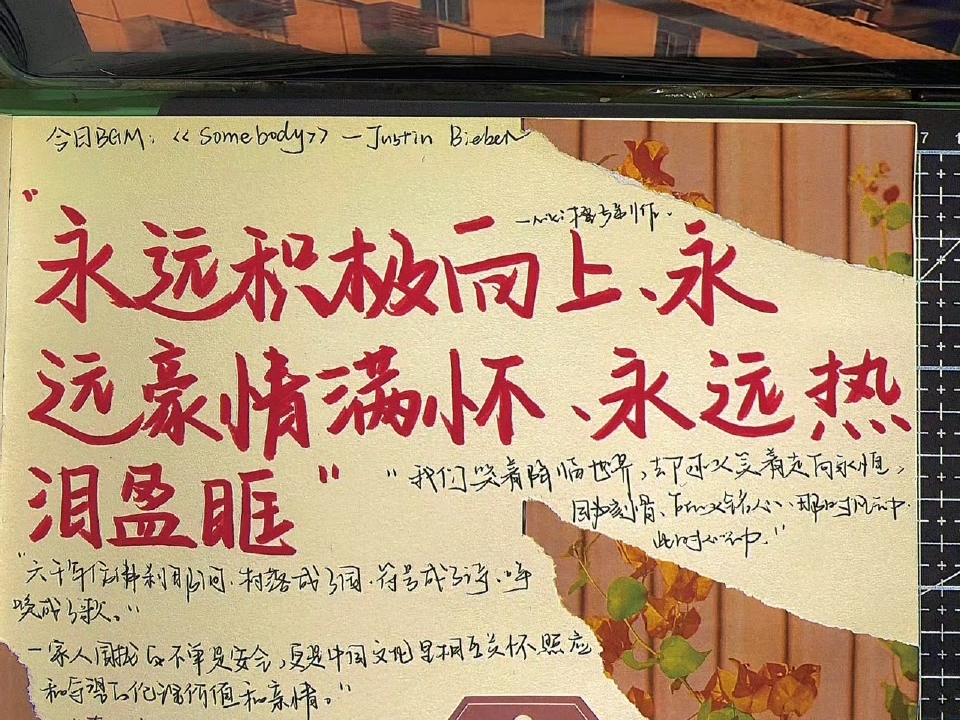 今日BGM：《Somebody》—Justin Bieber
制作.
"永远积极向上、永
远豪情满怀、永远热
泪盈眶"
"我们哭着降临世界，却可以笑着走向永恒，
因为刻骨、所以铭心、那时风中.
此时心中."
"六千年仿佛刹那间.村落成了国.符号成了诗.呼
唤成了歌。"
一家人 不单是安全，更是中国文化里相互关怀、照应
和 价值和亲情。"